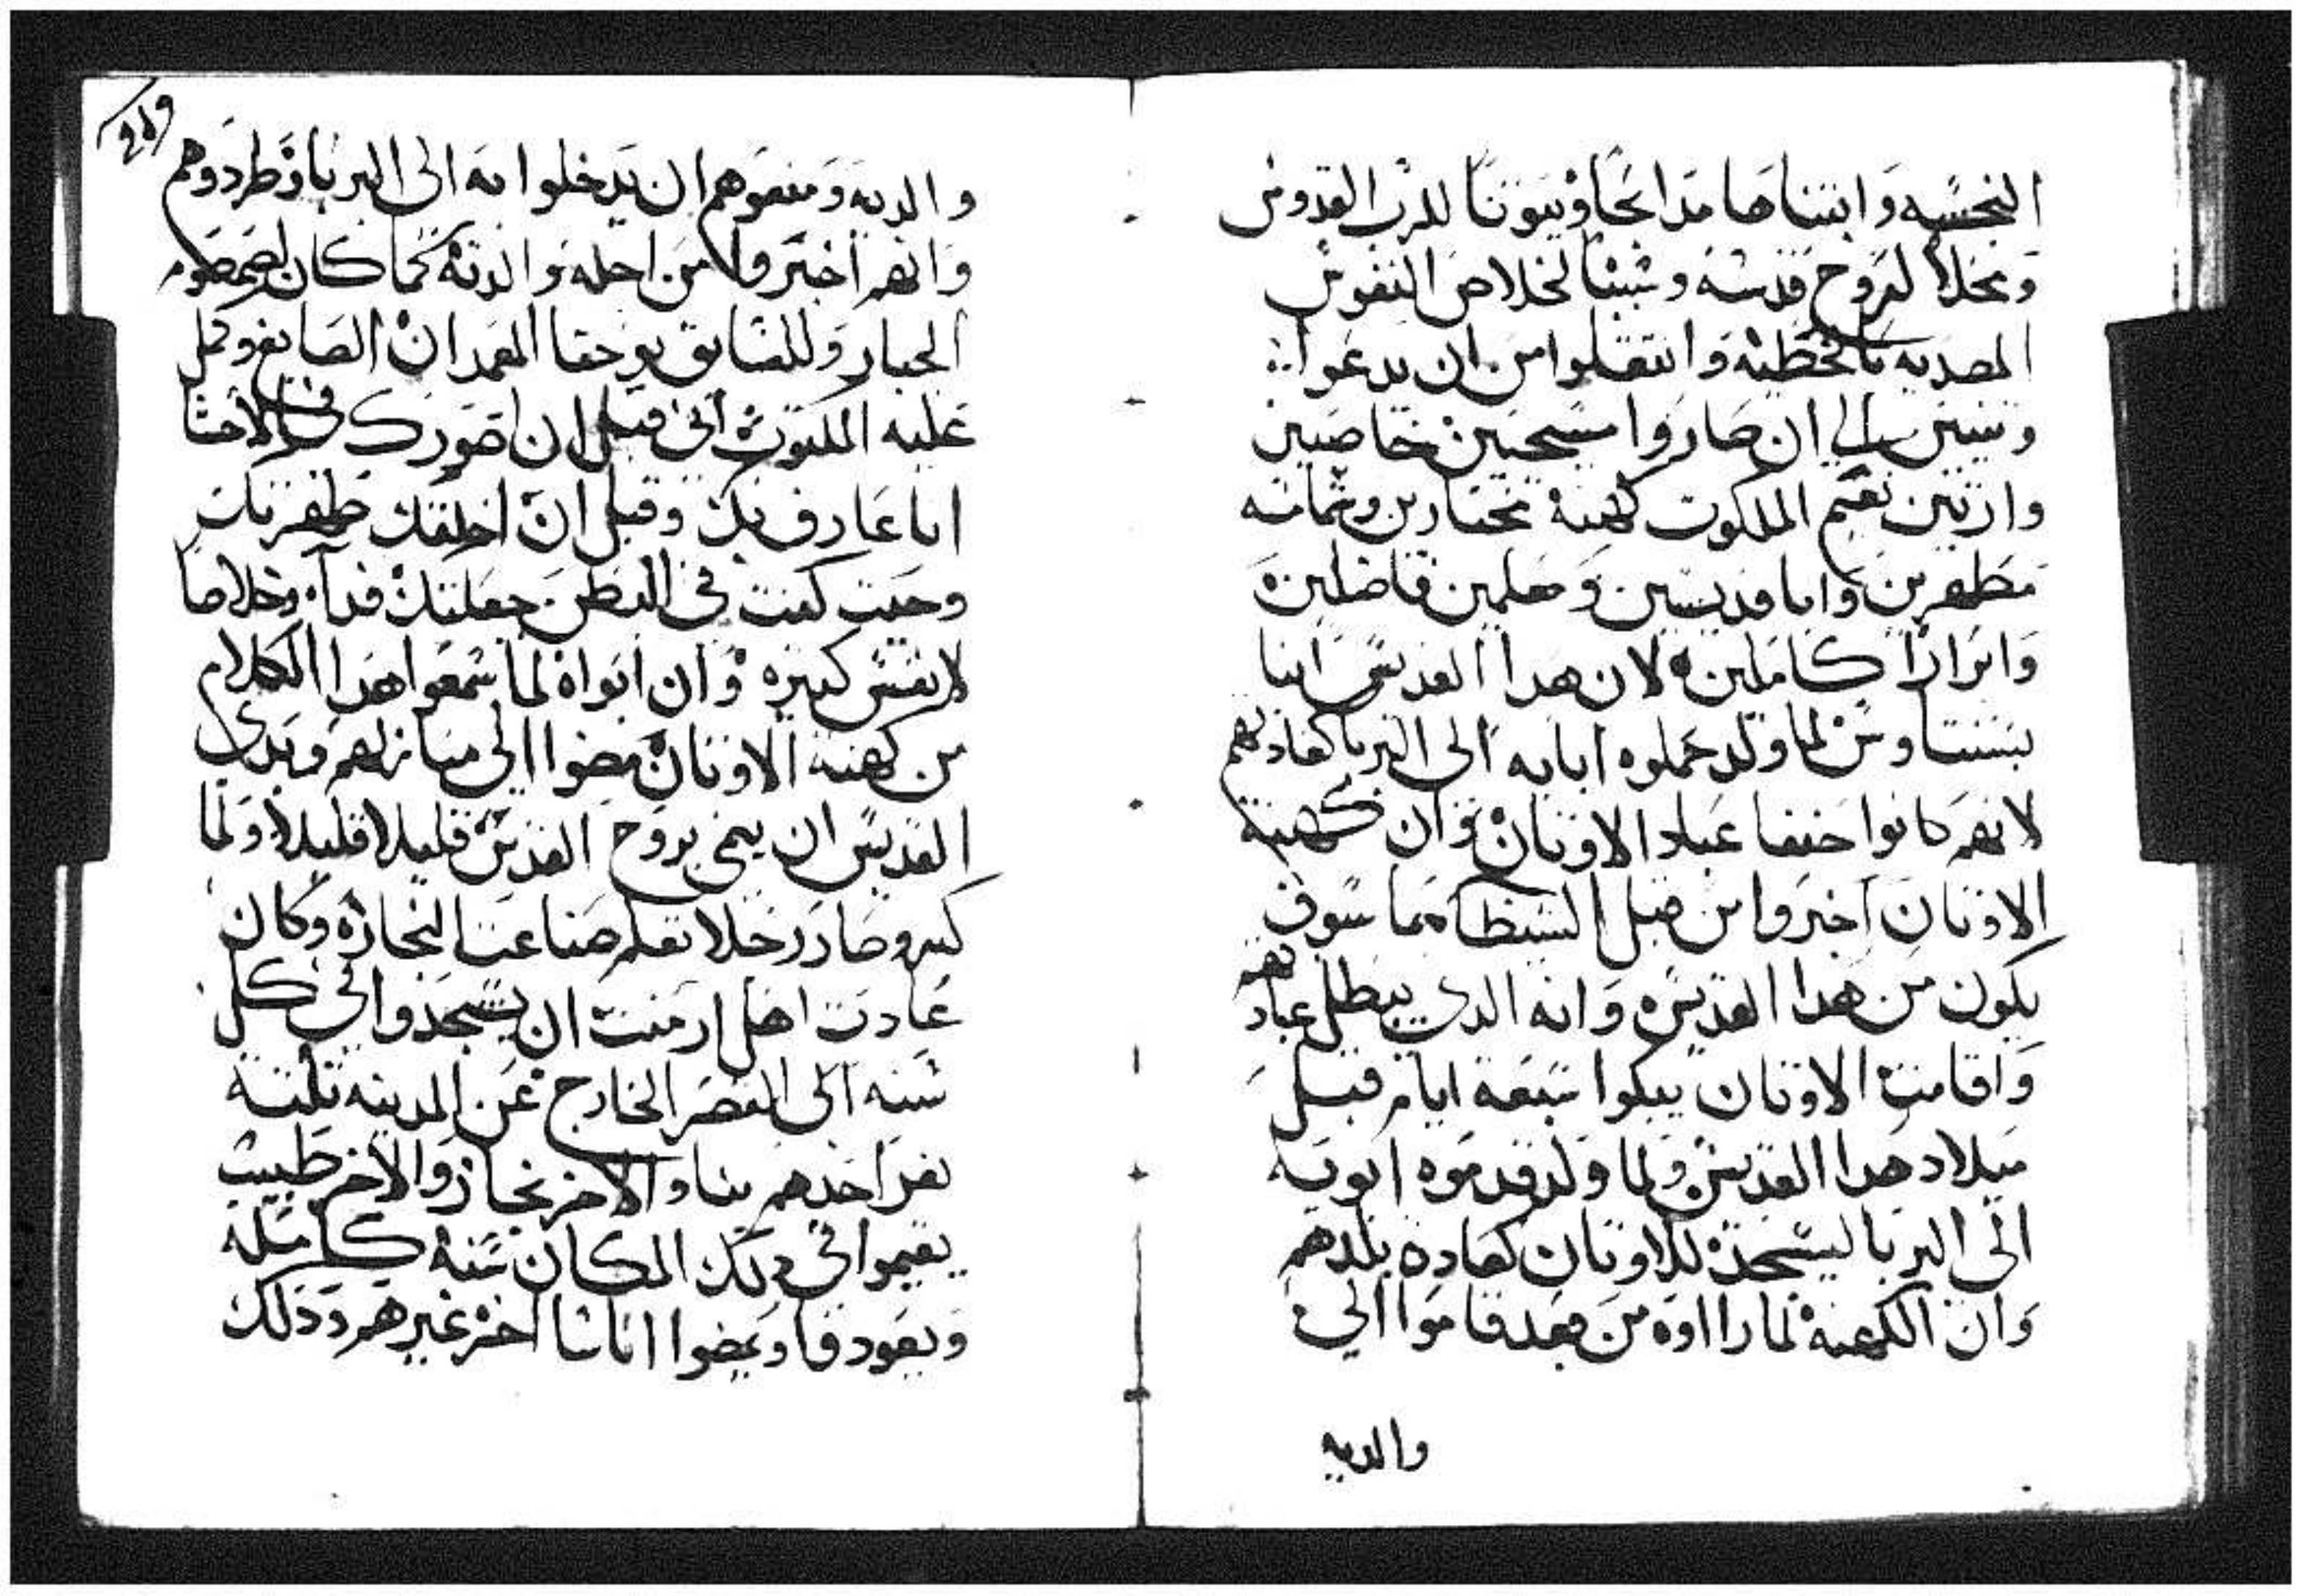 النجسه وابتناها مدابحا وبيوتا للرب القدوس
ومحلا لروح قدسه وسببا لخلاص النفوس
المصديه بالخطيه وانتقلوا من ان يدعوا
وتنيين الى ان صاروا مسيحيين خاصيين
وارتين نعيم الملكوت كهنة مختارين وشمامسه
مطهرين وابا قديسين ومعلمين فاضلين
وابرارا كاملين لان هدا القديس ابنا
بسنتاوس لما ولد حملوه ابايه الى البربا كعادتهم
لانهم كانوا حنفا عباد الاوتان وان كهنة
الاوتان اخبروا من قبل الشيطان بما سوف
يكون من هدا القديس وانه الدي يبطل عبادتهم
واقامت الاوتان يبكوا سبعة ايام قبل
ميلاد هدا القديس ولما ولد قدموه ابويه
الى البربا ليسجد للاوتان كعادة بلدهم
وان الكهنة لما راوه من بعد قاموا الي
والديه
والديه ومنعوهم ان يدخلوا به الى البربا وطردوهم
وانهم اخبروا من اجله والديه كما كان لصمصوم
الجبار وللسابق يوحنا المعمدان الصابغ وكمل
عليه المكتوب انى قبل ان اصورك في الاحشا
انا عارف بك وقبل ان اخلقك طهرتك
وحيت كنت في البطن جعلتك فداء وخلاصا
لانفس كتيره وان ابواه لما سمعوا هدا الكلام
من كهنة الاوتان مضوا الي منازلهم وبدى
القديس ان ينمى بروح القدس قليلا قليلا ولما
كبر وصار رجلا تعلم صناعت النجاره وكان
عادت اهل ارمنت ان يسجدوا في كل
سنه الى القصر الخارج عن المدينه تلته
نفر احدهم بنا والاخر نجار والاخر طبيب
يقيموا في دلك المكان سنه كامله
ويعودوا ويمضوا اناسا اخر غيرهم وذلك